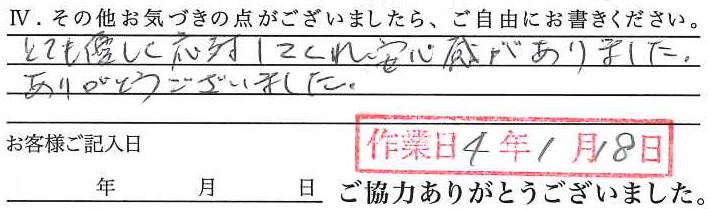 Ⅳ．その他お気づきの点がございましたら、ご自由にお書きください。
とても優しく応対してくれ、安心感がありました。
ありがとうございました。
お客様ご記入日
作業日4年1月18日
年　月　日　ご協力ありがとうございました。